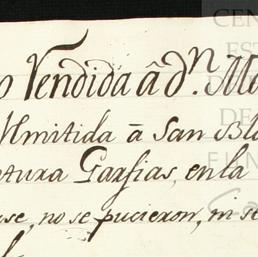 o Vendida â dⁿ. Ma
Ʋmitida â San Bla
ntura Garfias, en la
use, no se pucieron, ni se
CEN
ES
D
DE
FUN